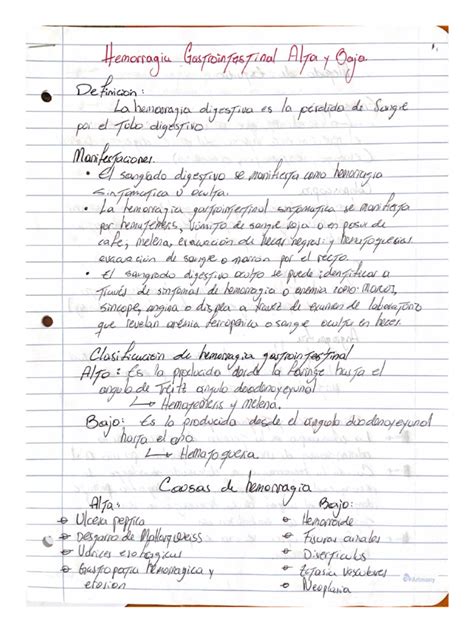 Hemorragia Gastrointestinal Alta y Baja.
Definicion:
La hemorragia digestiva es la perdida de sangre
por el tubo digestivo
Manifestaciones.
• El sangrado digestivo se manifiesta como hemorragia
sintomatica u oculta.
• La hemorragia gastrointestinal sintomatica se manifiesta
por hematemesis, vomito de sangre roja o en posos de
cafe, melena, evacuación de heces negras y hematoquecia
evacuación de sangre o marron por el recto.
• El sangrado digestivo oculto se puede identificar a
traves de sintomas de hemorragia o anemia como: mareos,
sincope, angina o disnea a traves de examen de laboratorio
que revelan anemia ferropenica o sangre oculta en heces.
Clasificación de hemorragia gastrointestinal
Alta: Es la producida desde la faringe hasta el
angulo de Treitz angulo duodenoyeyunal
↳ Hematemesis y melena.
Bajo: Es la producida desde el angulo duodenoyeyunal
hasta el ano
↳ Hematoquesia.
Causas de hemorragia
Alta:
Ulcera peptica
Desgarro de Mallory weiss
Varices esofagicas
Gastropatia hemorragica y
erosion
Bajo:
Hemorroide
Fisuras anales
Diverticulos
Ectasia vasculares
Neoplasia